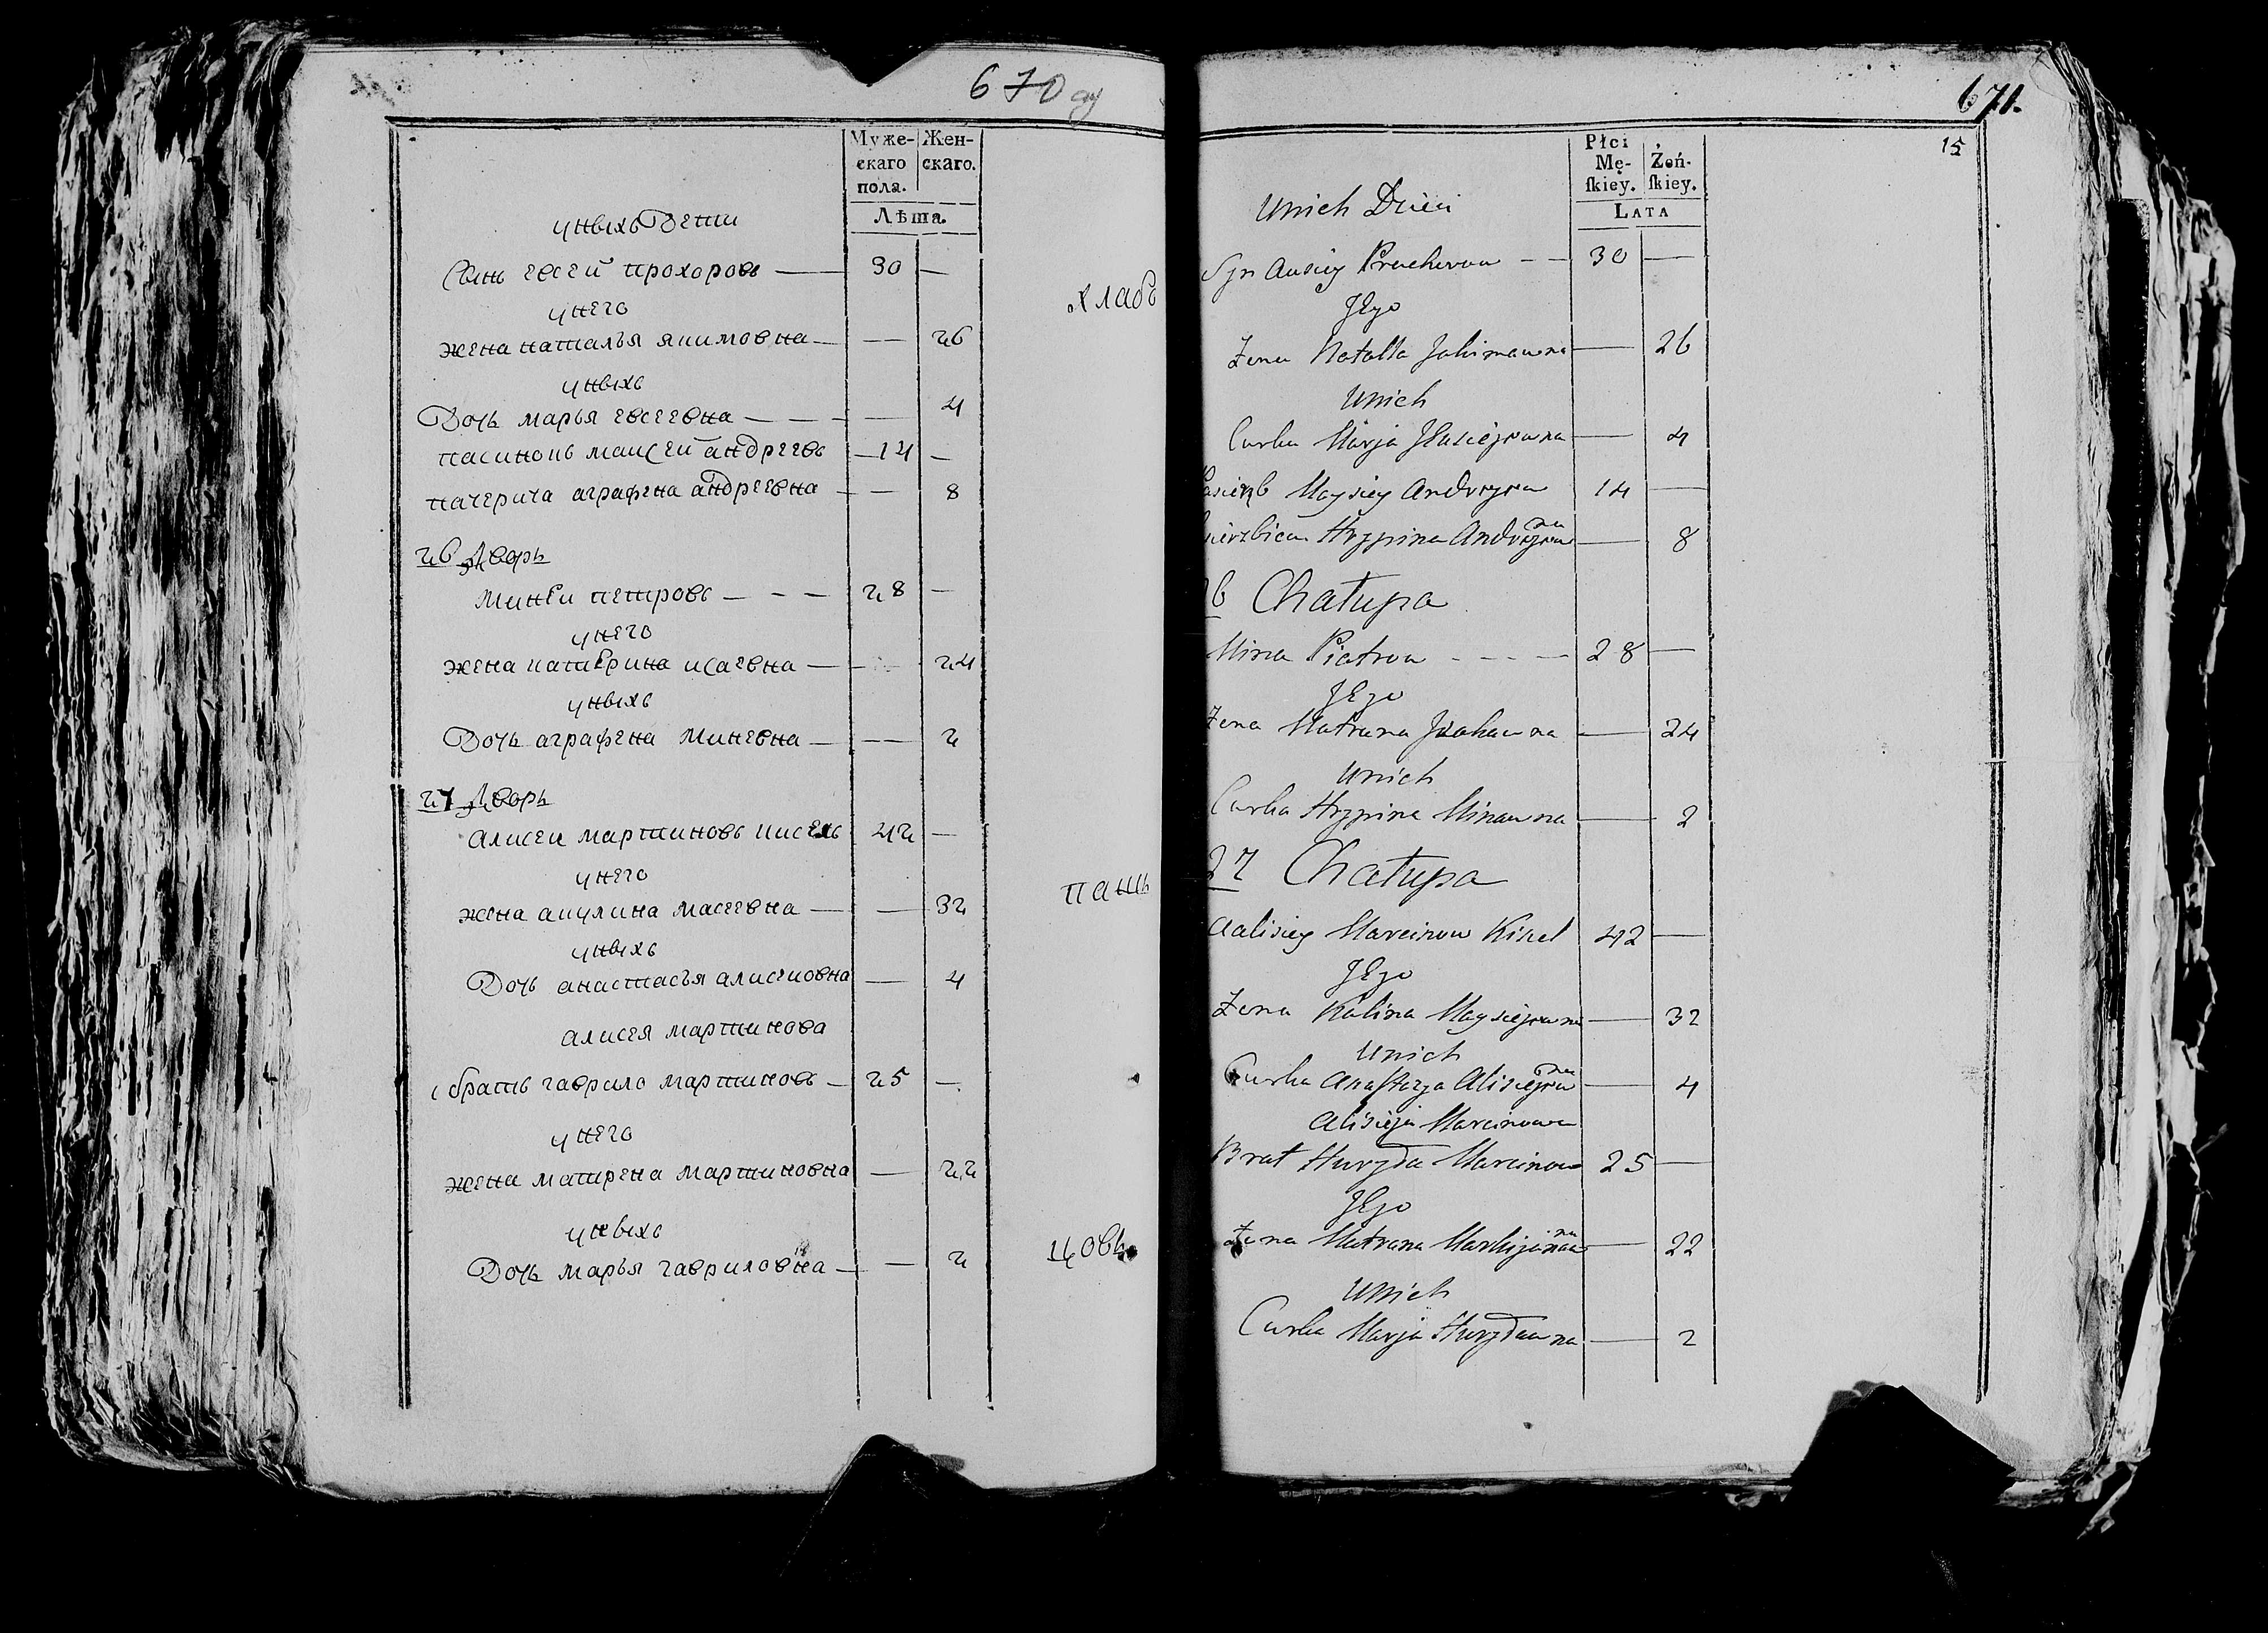 670
Муже-
скаго
пола.
Жен-
скаго.
Лѣта.
уныхъ дети
сынь евсей прохоровъ — 30 —
унего
жена наталья якимовна — — 26
уныхъ
дочь марья евсеевна — — — — 4
пасинокъ маисей андреевъ — 14 —
пачерича аграфена андреевна — — 8
26 дворъ
Минеи петровъ — — — 28 —
унего
жена катерина исаевна — — 24
уныхъ
дочь аграфена миневна — — 2
27 дворъ
алисеи мартиновъ кисель 42 —
унего
жена акулина масеевна — — 32
уныхъ
дочь анастасья алисиовна — 4
алисея мартинова
братъ гаврило мартиновъ — 25 —
унего
жена матрена мартиновна — 22
уныхъ
дочь марья гавриловна — — 2
хлабо
пашь
цовъ
671.
15
Płci
Mę-
skiey.
Żeń-
skiey.
LATA
Unich Dzieci
Syn Ausiey Prochorow — — 30 —
Jego
Zona Natalla Jakimawna — 26
Unich
Curka Marja Jausiejewna — 4
Pasierzb Maysiey Andreyew 14 —
sierzbica Hrypina Andreyewna — 8
6 Chałupa
Mina Piotrow - - - — 28 —
Jego
Zona Matruna Jsakawna — 24
Unich
Curka Hrypina Minawna — 2
27 Chałupa
Aalisiey Marcinow Kisel 42 —
Jego
Zona Kulina Maysiejewna — 32
Unich
Curka Anastazya Alisiejewna — 4
Alisieja Marcinowa
Brat Huryła Marcinow 25 —
Jego
Zona Matruna — 22
Unich
Curka Marja Huryławna — 2